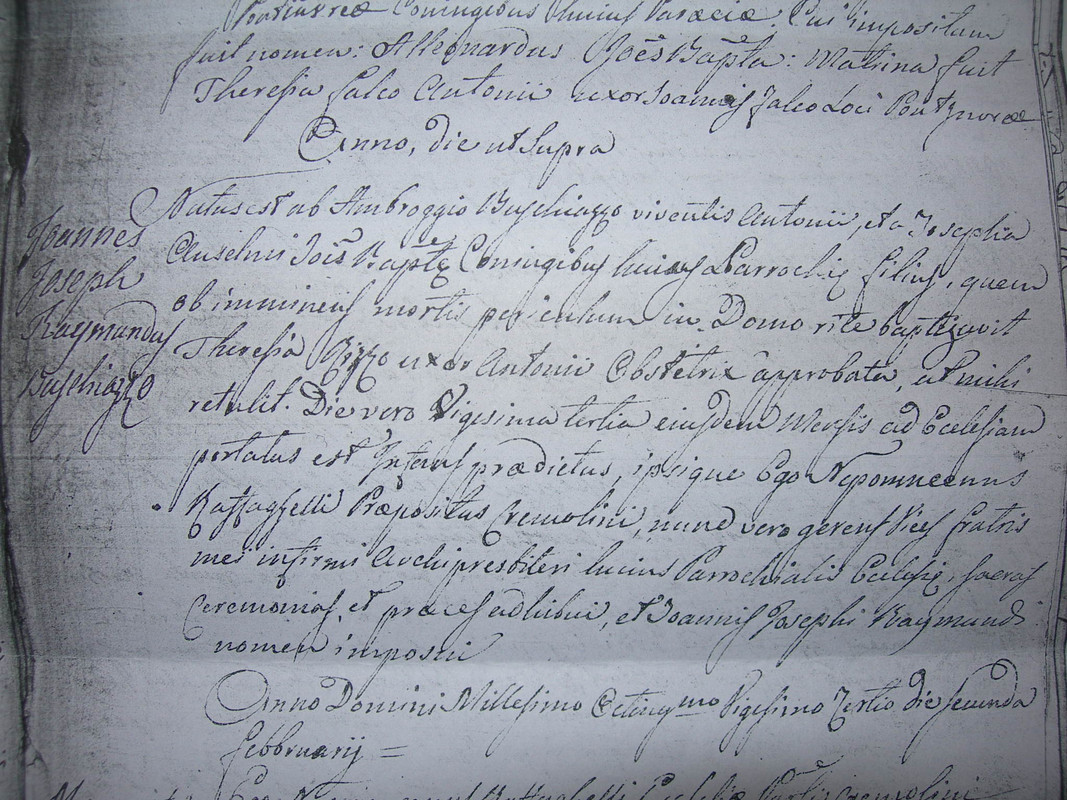 Pontinvreæ Coniugibus hujus Paræciæ. Cui impositum
fuit nomen: Alleonardus Joēs Bapta: Matrina fuit
Theresia Salvo Antonii uxor Joannis Salvo Loci Pontinvreæ
Anno, die ut Supra
Natus est ab Ambroggio Buschiazzo viventis Antonii, et a Josepha
Anselmi Jois Baptę Coniugibus hujus Parrochię filius, quem
ob imminens mortis periculum in Domo rite baptizavit
Theresia Rizzo uxor Antonii Obstetrix approbata, ut mihi
retulit. Die vero Vigesima tertia eiusdem Mensis ad Ecclesiam
portatus est Infans prædictus, ipsique Ego Nepomucenus
Præpositus Cremolini, nunc vero gerens Vices fratris
mei infirmi Archipresbiteri hujus Parrochialis Eccłesię, sacras
Ceremonias et præces adhibui, et Joannis Josephi Raymundi
nomen imposui
Joannes
Joseph
Raymundus
Buschiazzo
Anno Domini Millesimo Octingmo Vigesimo Tertio die secunda
Febbruarij =